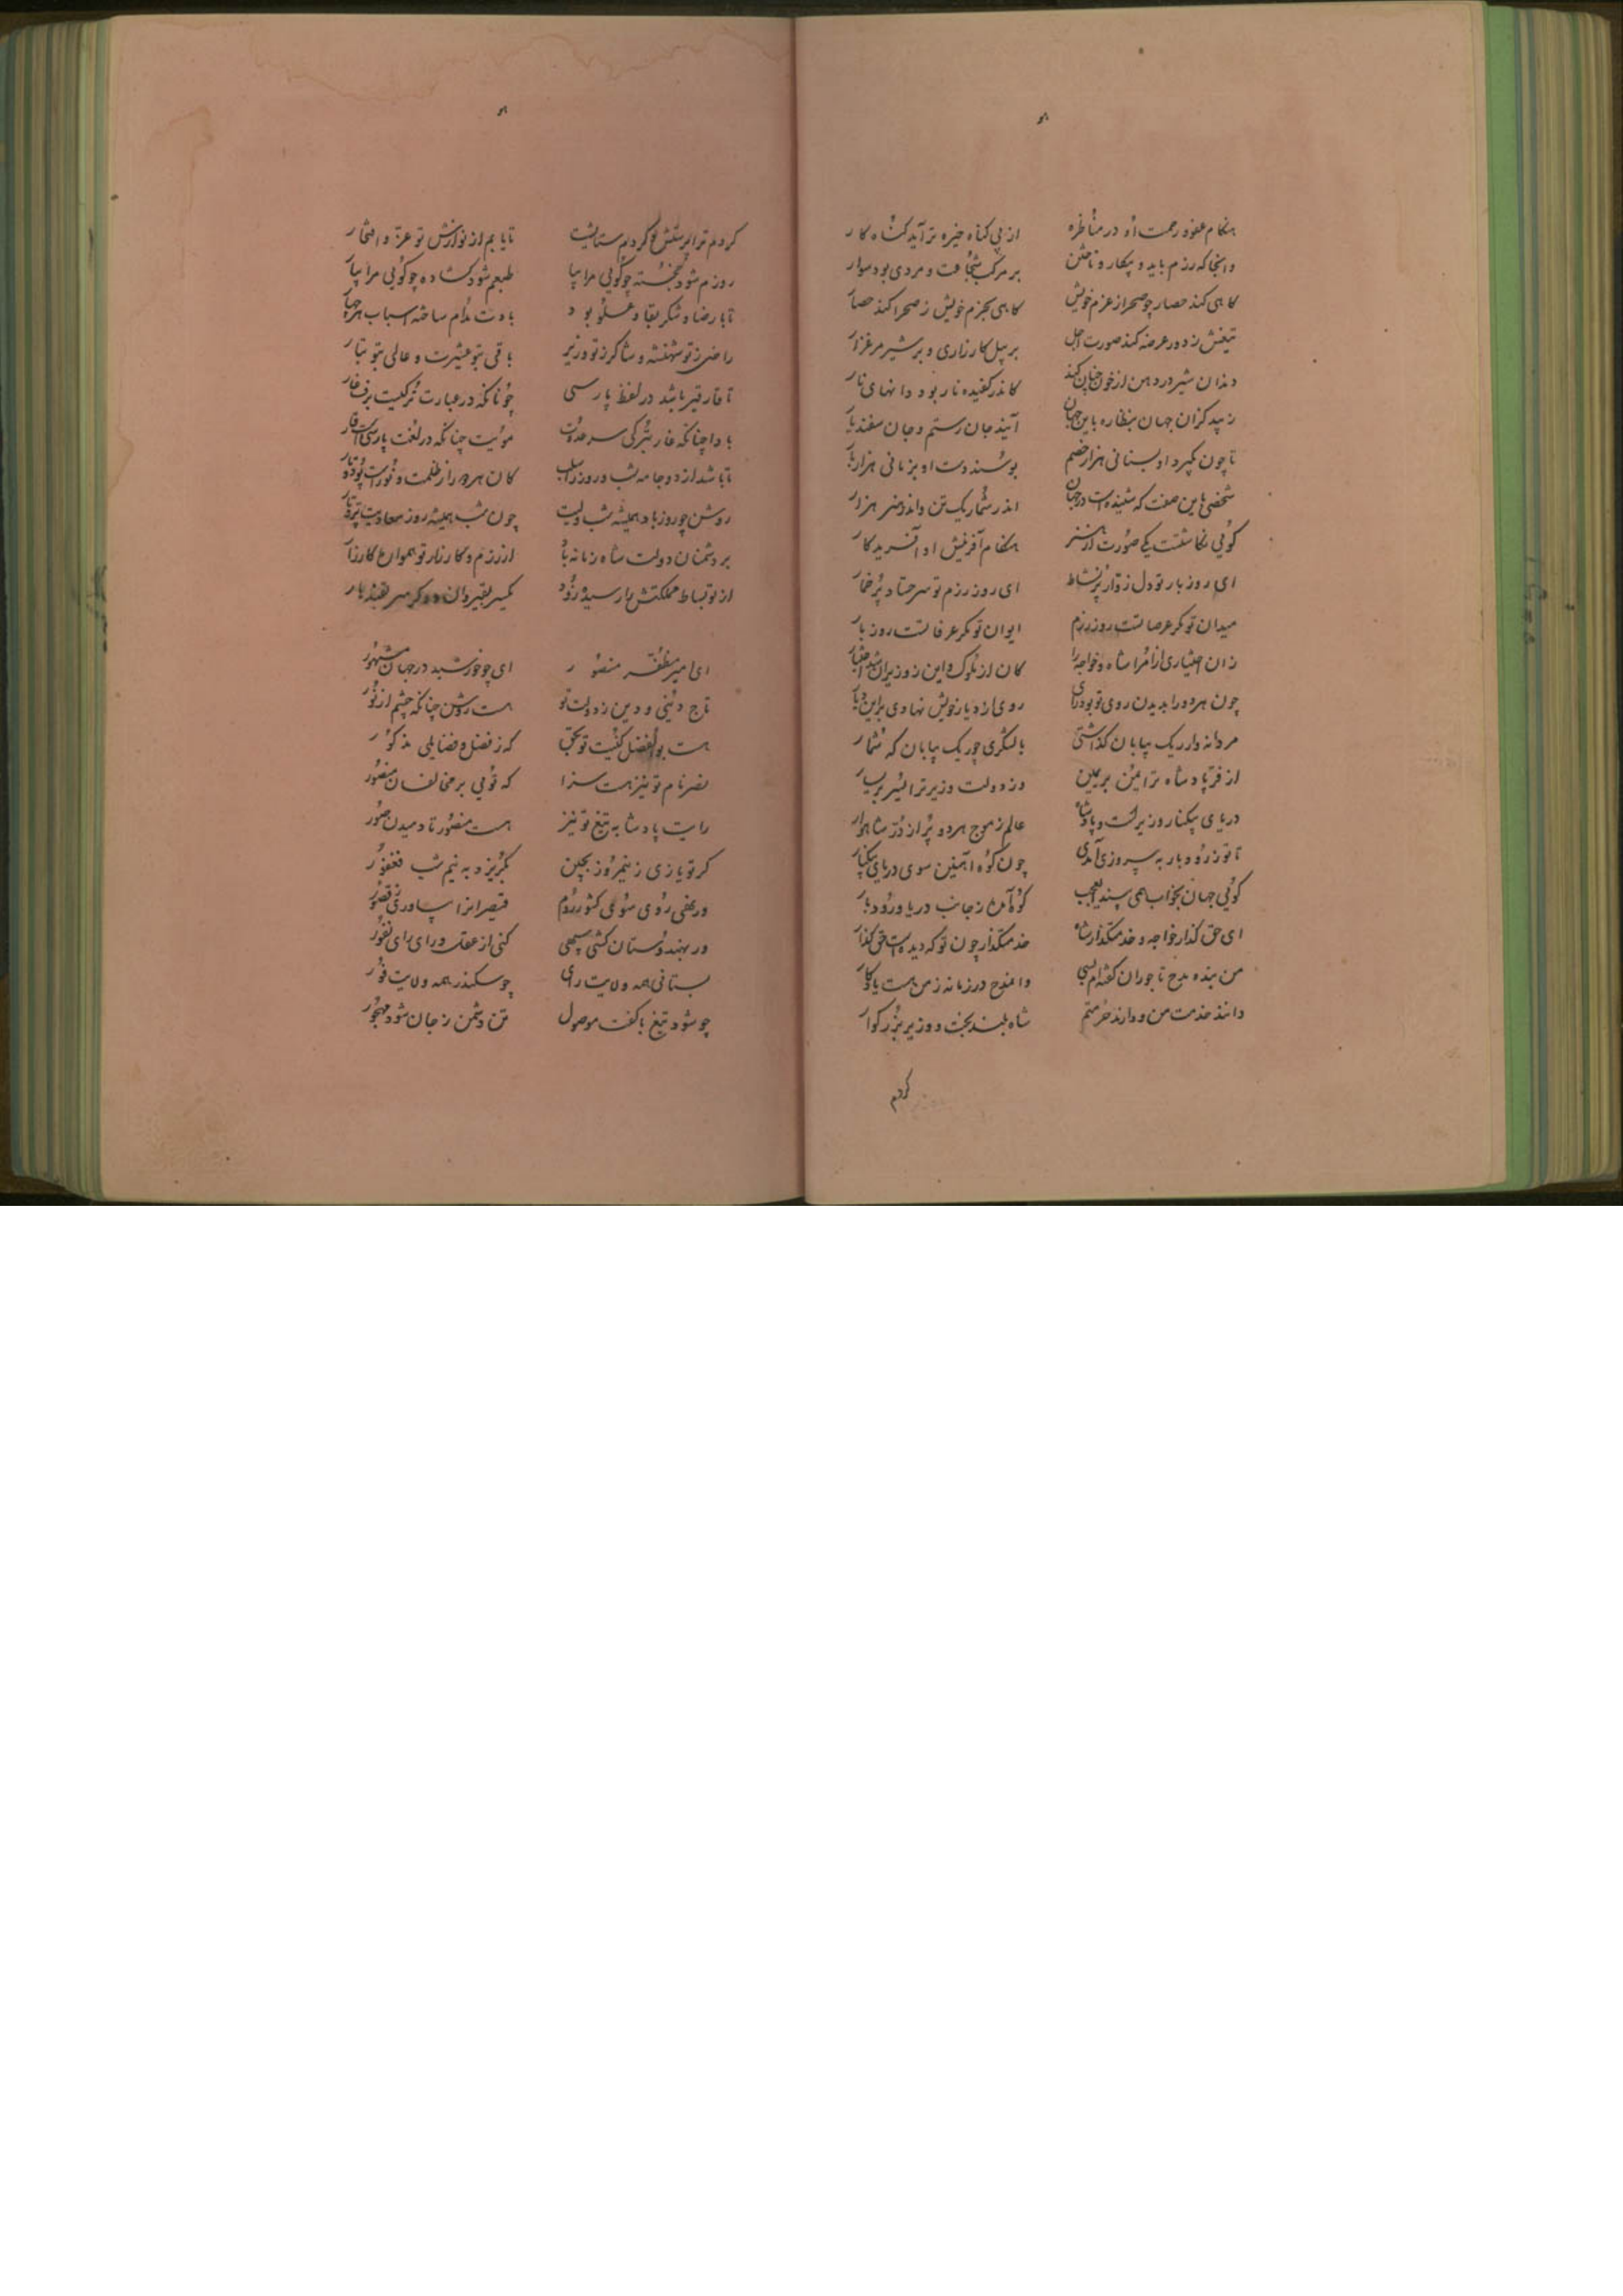 هنگام عفو و رحمت او در مناظره از بی‌گناه خیره‌تر آید گناه کار
وانجا که رزم باید و پیکار و تاختن بر مرکب شجاعت و مردی بود سوار
گاهی کند حصار چو صحرا ز عزم خویش گاهی بحزم خویش ز صحرا کند حصار
تیغش ز دور عرضه کند صورت اجل بر پیل کارزاری و بر شیر مرغزار
دندان شیر در دهن از خون چنان کند کاندر کفیده نار بود دانهای نار
زیبد کزان جهان بنظاره باین جهان آیند جان رستم و جان سفندیار
تا چون بگیرد او بسنانی هزار خصم بوسند دست او بزمانی هزار بار
شخصی باین صفت که شنیدست در جهان اندر شمار یک تن و اندر هنر هزار
گویی نگاشتست یکی صورت از هنر هنگام آفرینش او آفریدگار
ای روز بار تو دل زوار پر نشاط ای روز رزم تو سر حساد پر خمار
میدان تو مگر عرصاتست روز رزم ایوان تو مگر عرفاتست روز بار
زان اختیاری از امرا شاه و خواجه را کان از ملوک و این ز وزیران شد اختیار
چون هر دو را بدیدن روی تو بود رای روی از دیار خویش نهادی براین دیار
مردانه‌وار ریک بیابان گذاشتی با لشگری چو ریک بیابان که شمار
از فر پادشاه ترا یمن بر یمین وز دولت وزیر ترا یسر بر یسار
دریای بیکنار وزیرست و پادشاه عالم ز موج هر دو پر از در شاهوار
تا تو ز رودبار به پیروزی آمدی چون کوه آهنین سوی دریای بیکنار
گویی جهان بخواب همی بیند ای عجب کوه آمدن ز جانب دریا و رودبار
ای حق گذار خواجه و خدمتگذار شاه خدمتگذار چون تو که دیدست حق گذار
من بنده مدح تاجوران گفته‌ام بسی وا مدح در زمانه ز من هست یادگار
دانند خدمت من و دارند حرمتم شاه بلند بخت و وزیر بزرگوار
کردم
کردم ترا پرستش و کردم ستایشت تا یابم از نوازش تو عز و افتخار
روزم شود خجسته چو گویی مرا بیا طبعم شود گشاده چو گویی مرا بیار
تا با رضا و شکر بقا و علو بود بادت مدام ساخته اسباب هر چهار
راضی ز تو شهنشه و شاکر ز تو وزیر باقی بتو عشیرت و عالی بتو تبار
تا قار قیر باشد در لفظ پارسی چونانکه در عبارت ترکیست برف قار
بادا چنانکه قار بترکی سر عدوت مویت چنانکه در لغت پارسیست قار
تا باشد از دو جامه شب و روز را سلب کان هر دو را ز ظلمت و نورست پود و تار
روشن چو روز باد همیشه شب ولیت چون شب همیشه روز معادیت تیره و تار
بر دشمنان دولت شاه زمانه باد از رزم و کارزار تو هموار کارزار
از تو بساط مملکتش را رسیده زود یکسر بقیروان و دگر سر بقندهار
ای امیر مظفر منصور ای چو خورشید در جهان مشهور
تاج دنیی و دین ز دولت تو هست روشن چنانکه چشم از نور
هست بوالفضل کنیت تو بحق که ز فضل و فضایلی مذکور
نصر نام تو نیز هست سزا که تویی بر مخالفان منصور
رایت پادشا به تیغ تو نیز هست منصور تا دمیدن صور
گر تو یازی ز نیمروز بچین بگریزد به نیم شب فغفور
ور نهی روی سوی کشور روم قیصر انرا سپاوری ز قصور
ور بهندوستان کشی سپهی کنی از عقل و رای رای نفور
بستانی همه ولایت رای چو سکندر همه ولایت فور
چو شود تیغ با کفت موصول تن دشمن ز جان شود مهجور